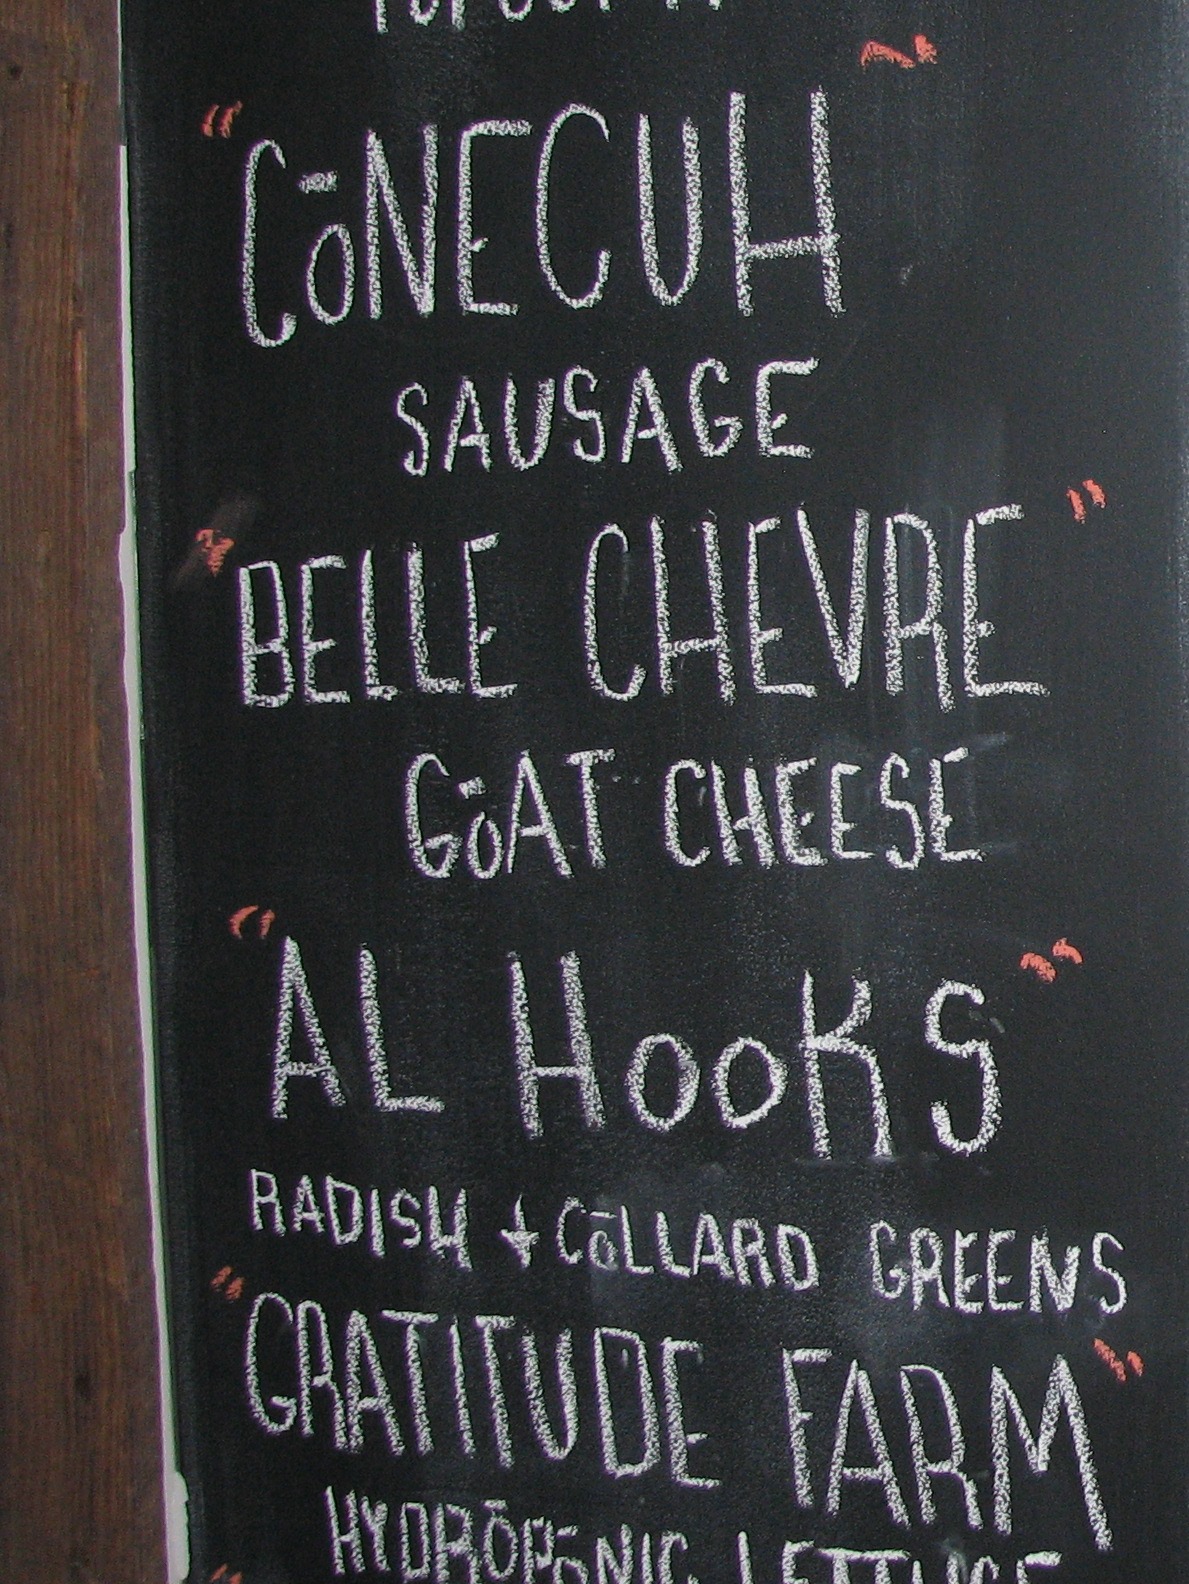 "CōNECUH"
SAUSAGE
"BELLE CHEVRE"
GōAT CHEESE
"AL HooKS"
RADISH + CōLLARD GREENS
"GRATITUDE FARM"
HYDRōPōNIC LETTUCE